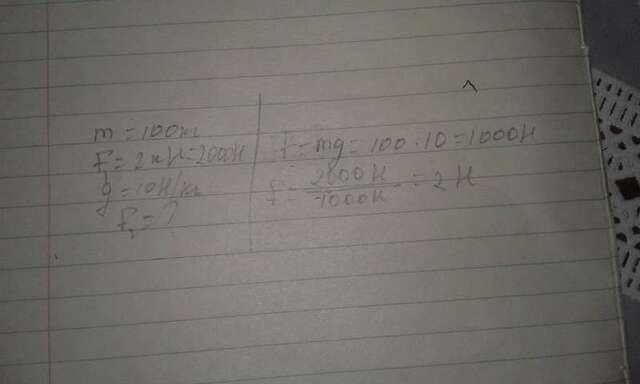 m = 100кг
F = 2кН = 2000Н
g = 10Н/кг
F₁ = ?
f = mg = 100 · 10 = 1000Н
f = 2000Н / 1000Н = 2Н